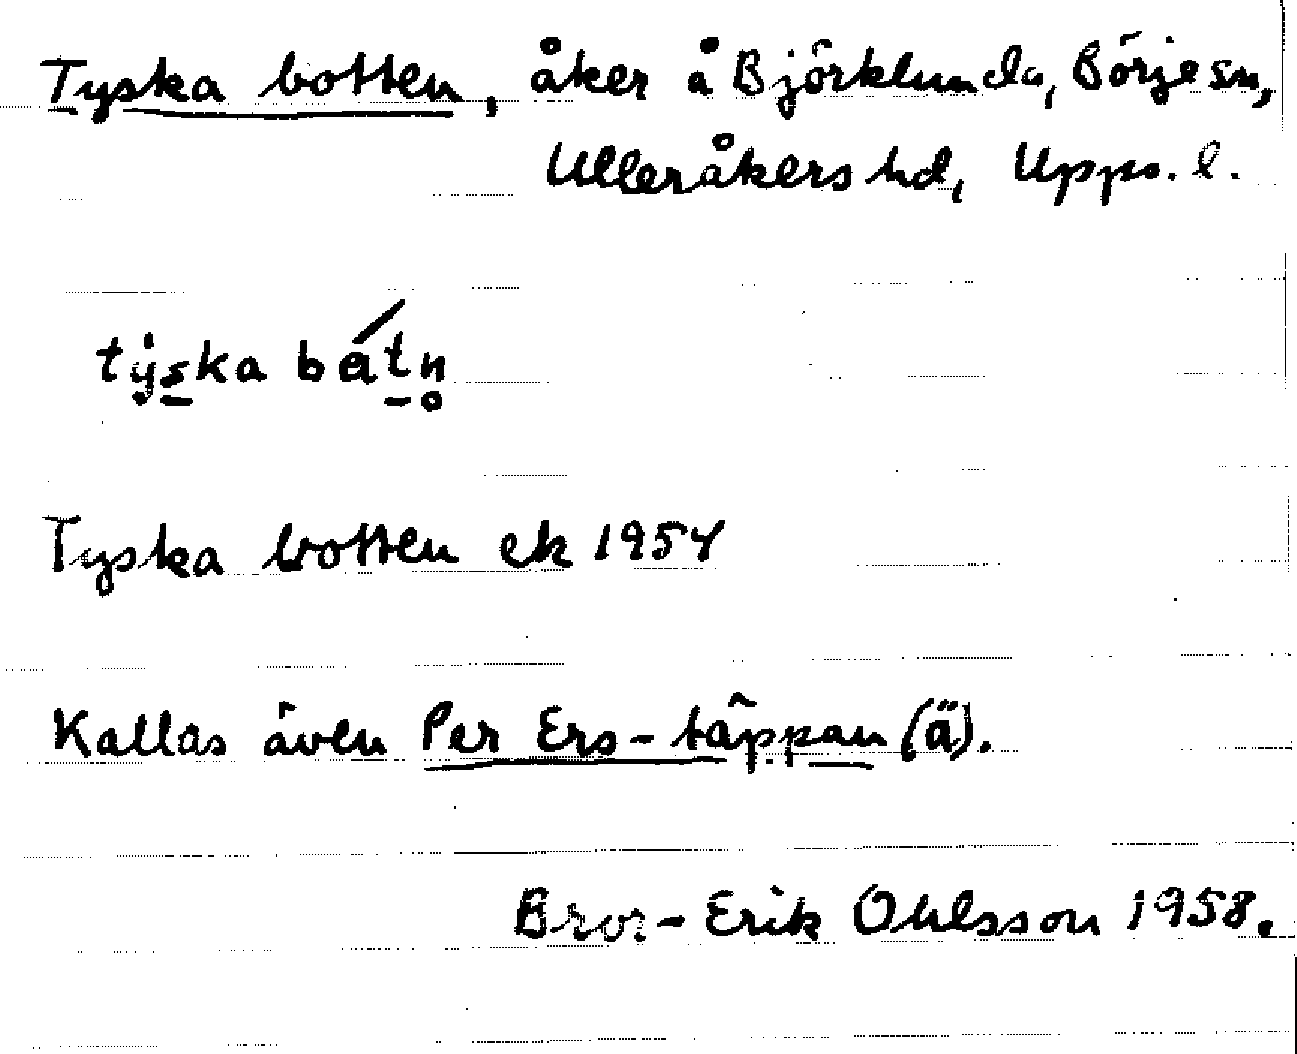 Tyska botten, åker å Björklunda, Börje sn,
Ulleråkers hd, Upps. l.
tyska bátn̥
Tyska botten ek 1954
Kallas även Per Ers-täppan (ä).
Bror-Erik Ohlsson 1958.